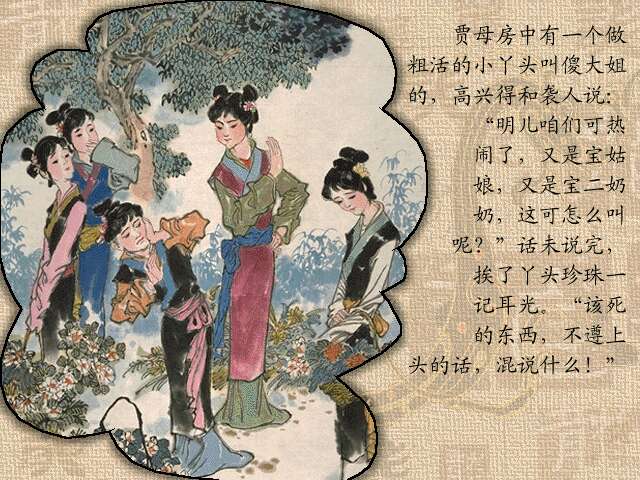 贾母房中有一个做
粗活的小丫头叫傻大姐
的，高兴得和袭人说：
“明儿咱们可热
闹了，又是宝姑
娘，又是宝二奶
奶，这可怎么叫
呢？”话未说完，
挨了丫头珍珠一
记耳光。“该死
的东西，不遵上
头的话，混说什么！”